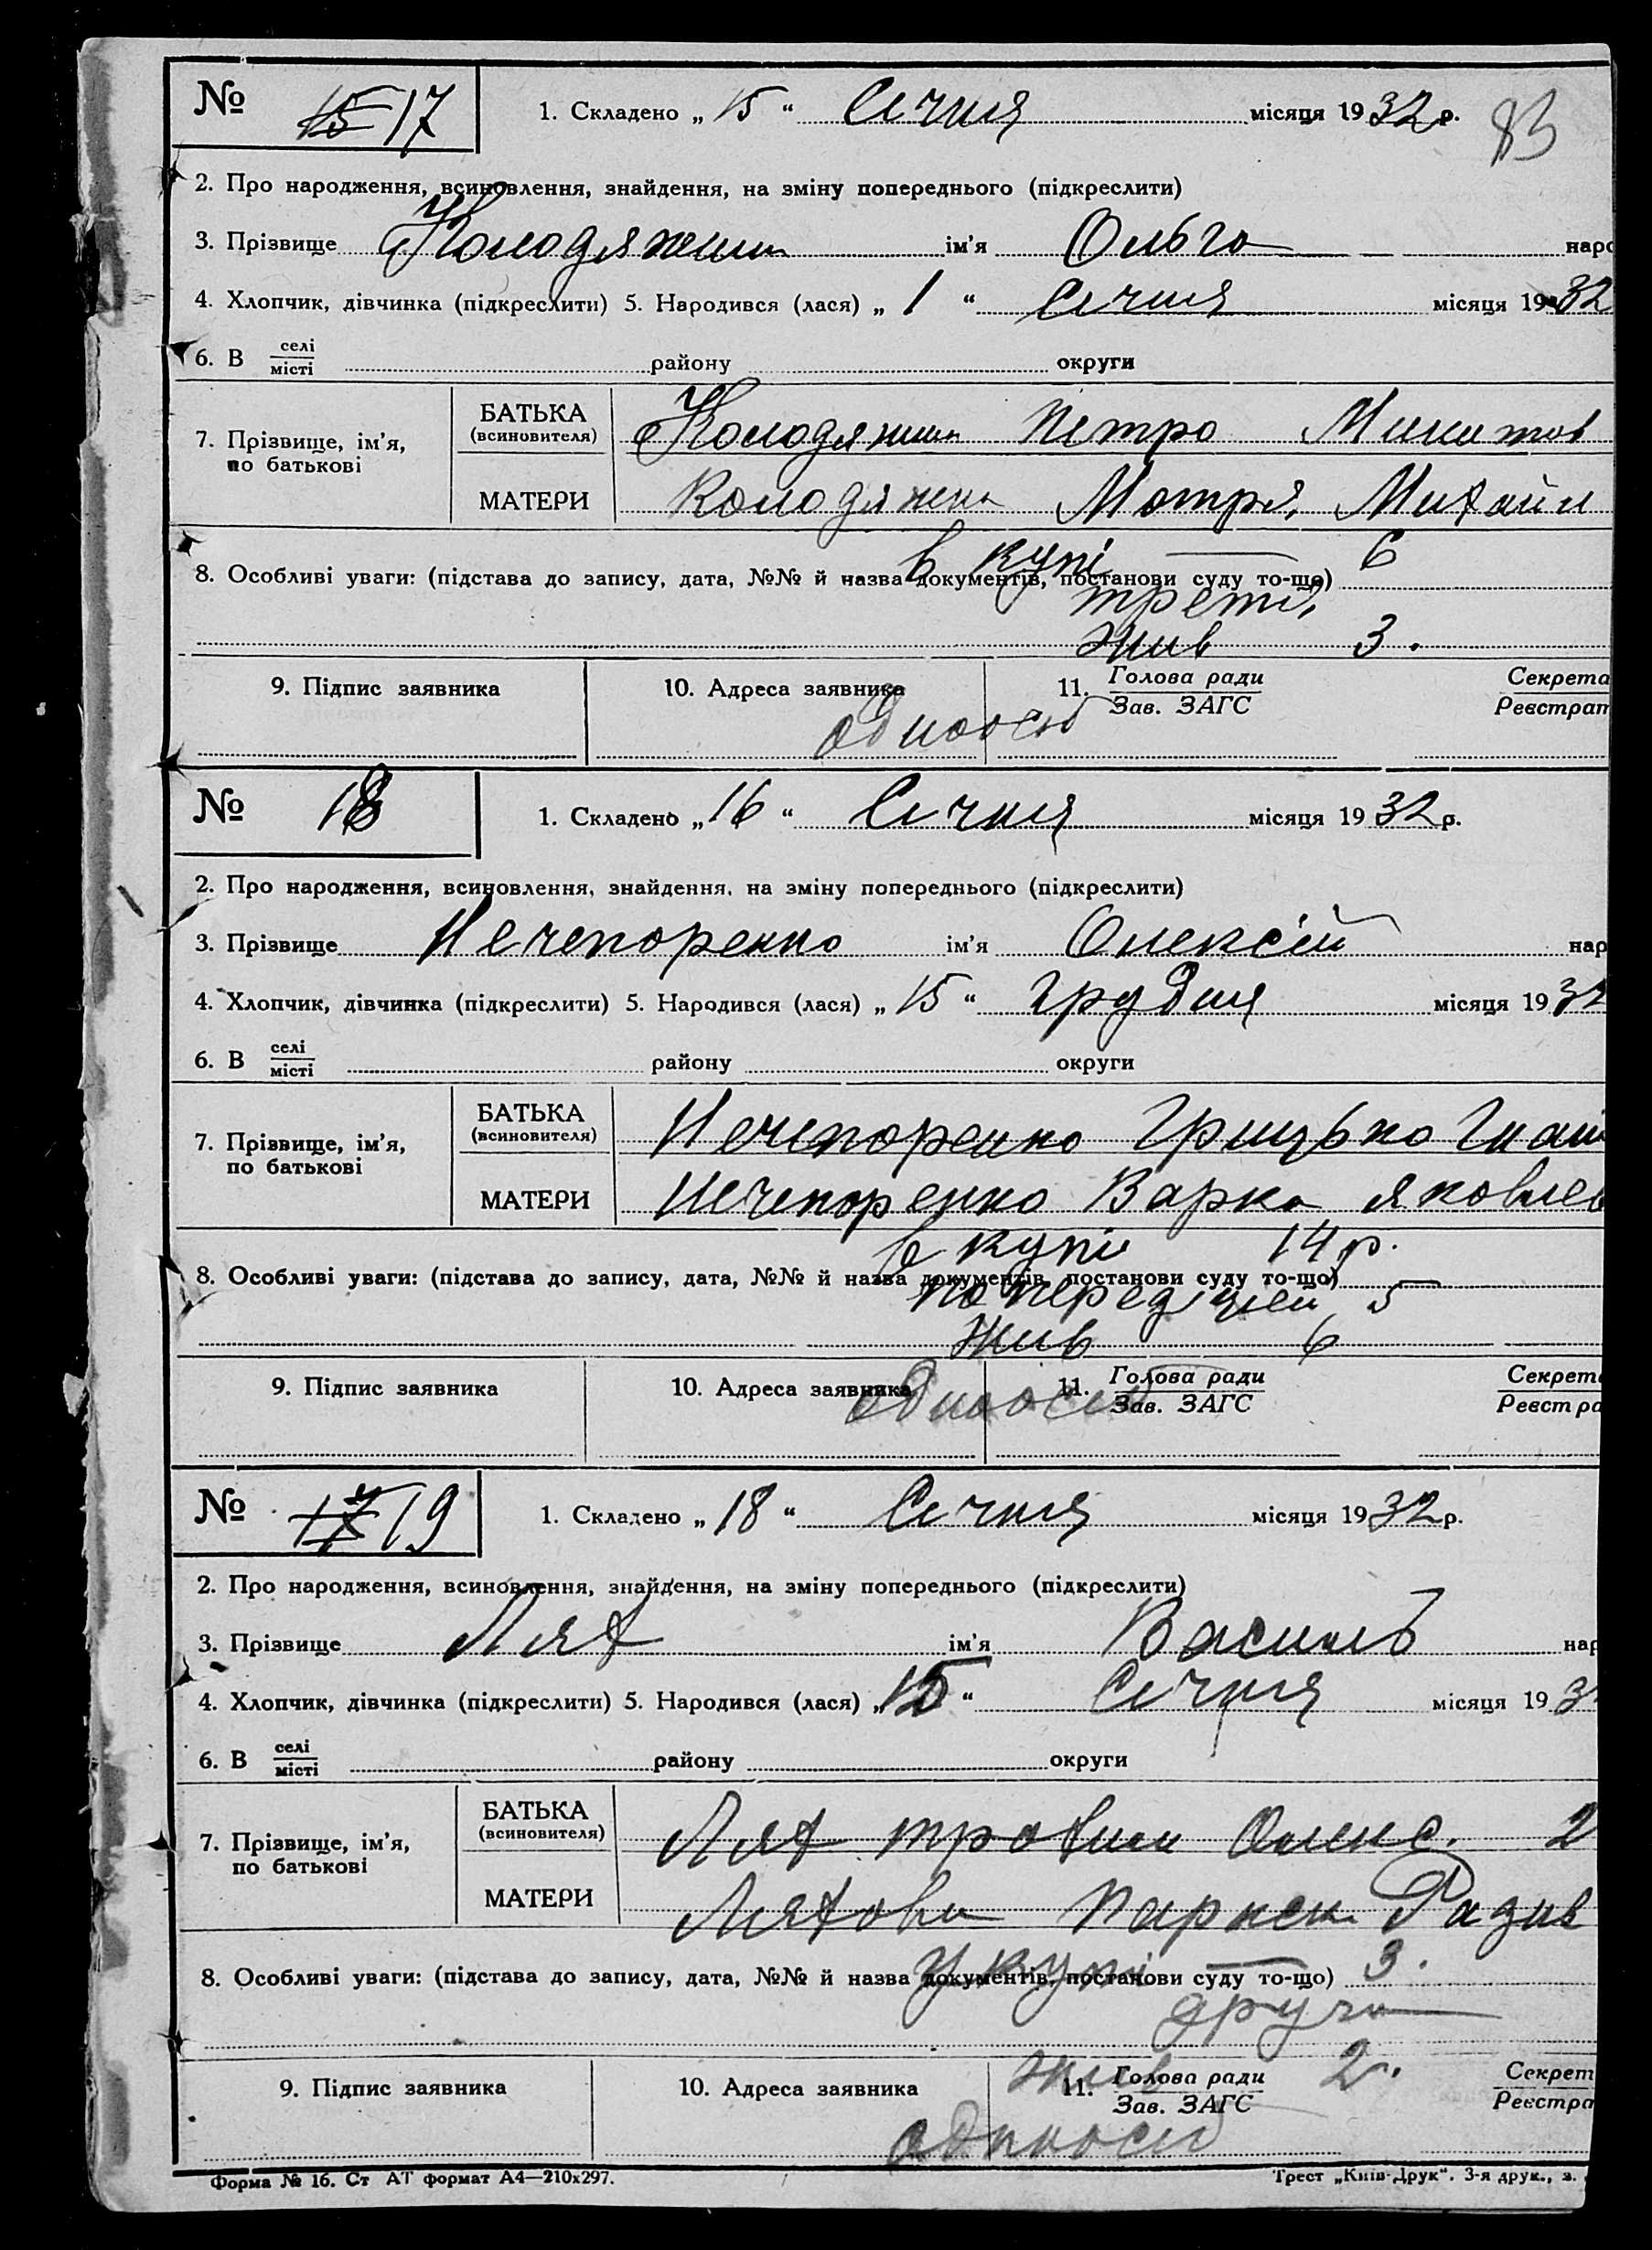 № 15 17 1. Складено „ 15 “ Січня місяця 1932 р. 83
2. Про народження, всиновлення, знайдення, на зміну попереднього (підкреслити)
3. Прізвище Колодяжни ім’я Ольга наро
4. Хлопчик, дівчинка (підкреслити) 5. Народився (лася) „ 1 “ Січня місяця 1932
6. В селі/місті району округи
7. Прізвище, ім’я, по батькові
БАТЬКА (всиновителя) Колодяжни Петро Микитов
МАТЕРИ Колодяжна Мотря Михайл
в купі — 6
8. Особливі уваги: (підстава до запису, дата, №№ й назва документів, постанови суду то-що)
третя
жив 3.
9. Підпис заявника 10. Адреса заявника 11. Голова ради/Зав. ЗАГС Секрета/Реєстрат
одноосіб
№ 18 1. Складено „ 16 “ Січня місяця 1932 р.
2. Про народження, всиновлення, знайдення, на зміну попереднього (підкреслити)
3. Прізвище Нечепоренко ім’я Олексій нар
4. Хлопчик, дівчинка (підкреслити) 5. Народився (лася) „ 15 “ Грудня місяця 1932
6. В селі/місті району округи
7. Прізвище, ім’я, по батькові
БАТЬКА (всиновителя) Нечепоренко Грицько Гнат
МАТЕРИ Нечепоренко Варка Яковлев
в купі 14 р.
8. Особливі уваги: (підстава до запису, дата, №№ й назва документів, постанови суду то-що)
попередуней 5
жив 6
9. Підпис заявника 10. Адреса заявника 11. Голова ради/Зав. ЗАГС Секрета/Реєстра
одноосіб
№ 17 19 1. Складено „ 18 “ Січня місяця 1932 р.
2. Про народження, всиновлення, знайдення, на зміну попереднього (підкреслити)
3. Прізвище Лях ім’я Василь нар
4. Хлопчик, дівчинка (підкреслити) 5. Народився (лася) „ 15 “ Січня місяця 193
6. В селі/місті району округи
7. Прізвище, ім’я, по батькові
БАТЬКА (всиновителя) Лях Трофим Олекс. 2
МАТЕРИ Ляхова Параск Радив
у купі — 3.
8. Особливі уваги: (підстава до запису, дата, №№ й назва документів, постанови суду то-що)
друга
жив 2.
9. Підпис заявника 10. Адреса заявника 11. Голова ради/Зав. ЗАГС Секрет/Реєстра
одноосіб
Форма № 16. Ст АТ формат А4—210х297. Трест „Київ-Друк“. 3-я друк., з.